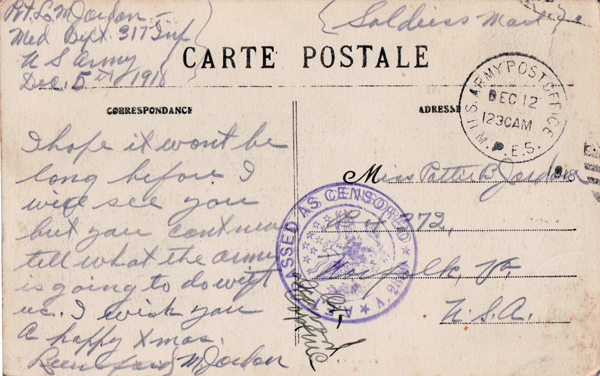 Pvt. L. M. Jordan –
Med Dept. 317 Inf
U S Army
Dec. 5th 1918
Soldiers Mail
CARTE POSTALE
U.S. ARMY POST OFFICE
DEC 12
123CAM
M.P.E.S.
CORRESPONDANCE
ADRESSE
I hope it wont be
long before I
will see you
but you cant
tell what the army
is going to do with
us. I wish you
a happy Xmas.
M Jordan
Miss Pattie B. Jordan
Box 272,
Norfolk, Va.
U.S.A.
PASSED AS CENSORED